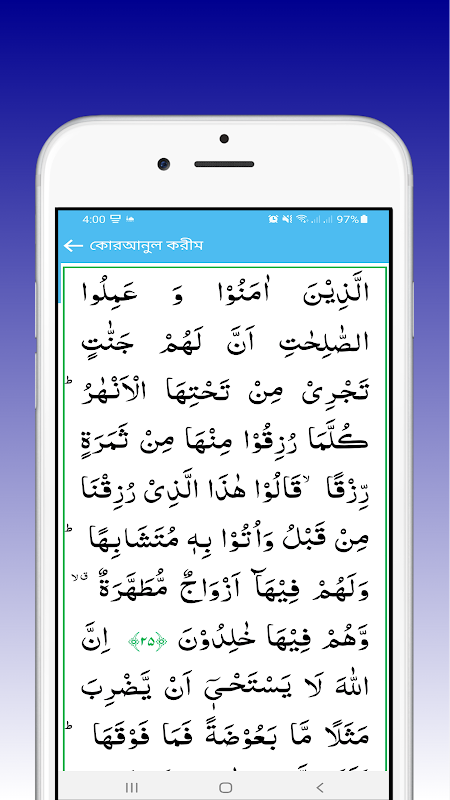 4:00 97%
কোরআনুল করীম
الَّذِيْنَ اٰمَنُوْا وَ عَمِلُوا
الصّٰلِحٰتِ اَنَّ لَهُمْ جَنّٰتٍ
تَجْرِیْ مِنْ تَحْتِهَا الْاَنْهٰرُ ؕ
كُلَّمَا رُزِقُوْا مِنْهَا مِنْ ثَمَرَةٍ
رِّزْقًا ۙ قَالُوْا هٰذَا الَّذِیْ رُزِقْنَا
مِنْ قَبْلُ وَاُتُوْا بِهٖ مُتَشَابِهًا ؕ
وَلَهُمْ فِيْهَاۤ اَزْوَاجٌ مُّطَهَّرَةٌ ۙۗ
وَّهُمْ فِيْهَا خٰلِدُوْنَ ﴿۲۵﴾ اِنَّ
اللهَ لَا يَسْتَحْیٖۤ اَنْ يَّضْرِبَ
مَثَلًا مَّا بَعُوْضَةً فَمَا فَوْقَهَا ؕ